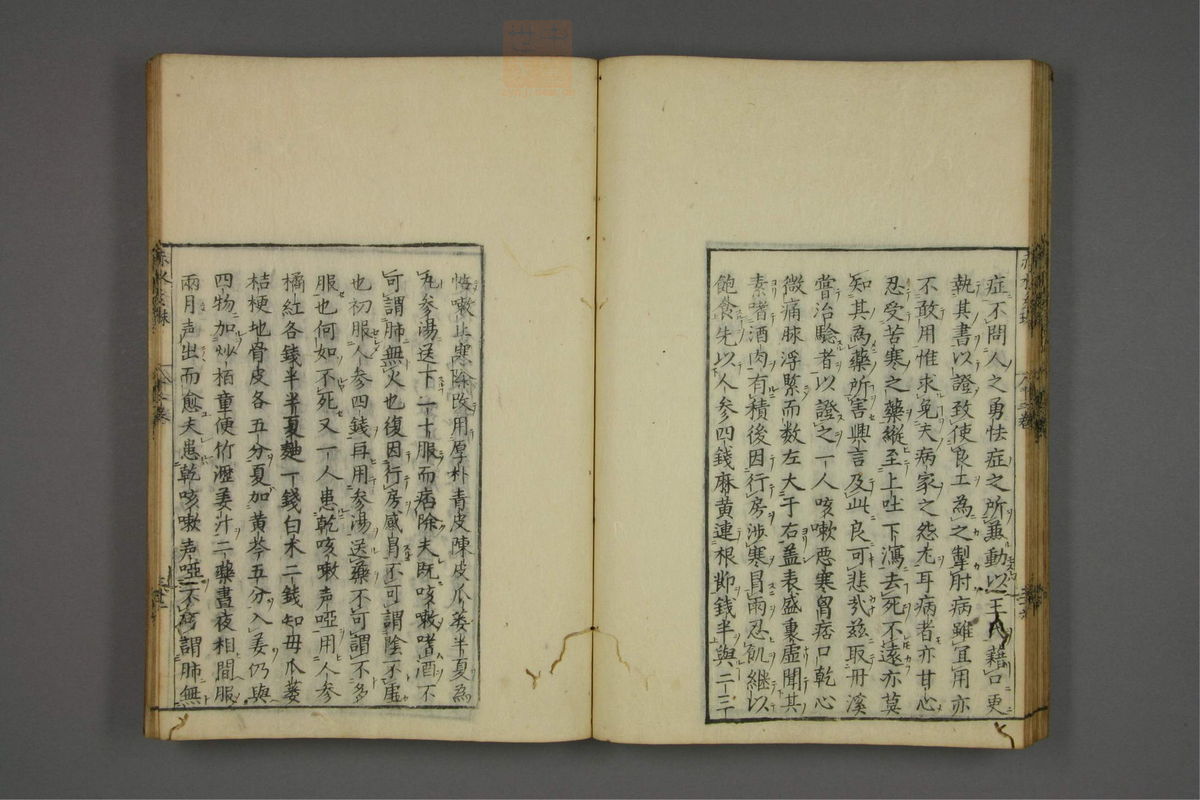 症不問人之勇怯症之所兼動以王人藉口更
執其書以證致使良工為之掣肘病雖宜用亦
不敢用惟求免夫病家之怨尤耳病者亦甘心
忍受苦寒之藥縱至上吐下瀉去死不遠亦莫
知其為藥所害興言及此良可悲哉兹取丹溪
嘗治驗者以證之一人咳嗽惡寒胷痞口乾心
微痛脉浮緊而数左大于右蓋表盛裏虛聞其
素嗜酒肉有積後因行房涉寒冒雨忍飢継以
飽食先以人参四錢麻黄連根節錢半與二三丁
悋嗽止寒除改用厚朴青皮陳皮瓜蔞半夏為
丸参湯送下二十服而痞除夫既咳嗽嗜酒不
可謂肺無火也復因行房感冒不可謂陰不虛
也初服人参四錢再用参湯送藥不可謂不多
服也何如不死又一人患乾咳嗽声啞用人参
橘紅各錢半半夏麯一錢白术二錢知母瓜蔞
桔梗地骨皮各五分夏加黄芩五分入姜仍與
四物加炒栢童便竹瀝姜汁二藥晝夜相間服
兩月声出而愈夫患乾咳嗽声啞不可謂肺無